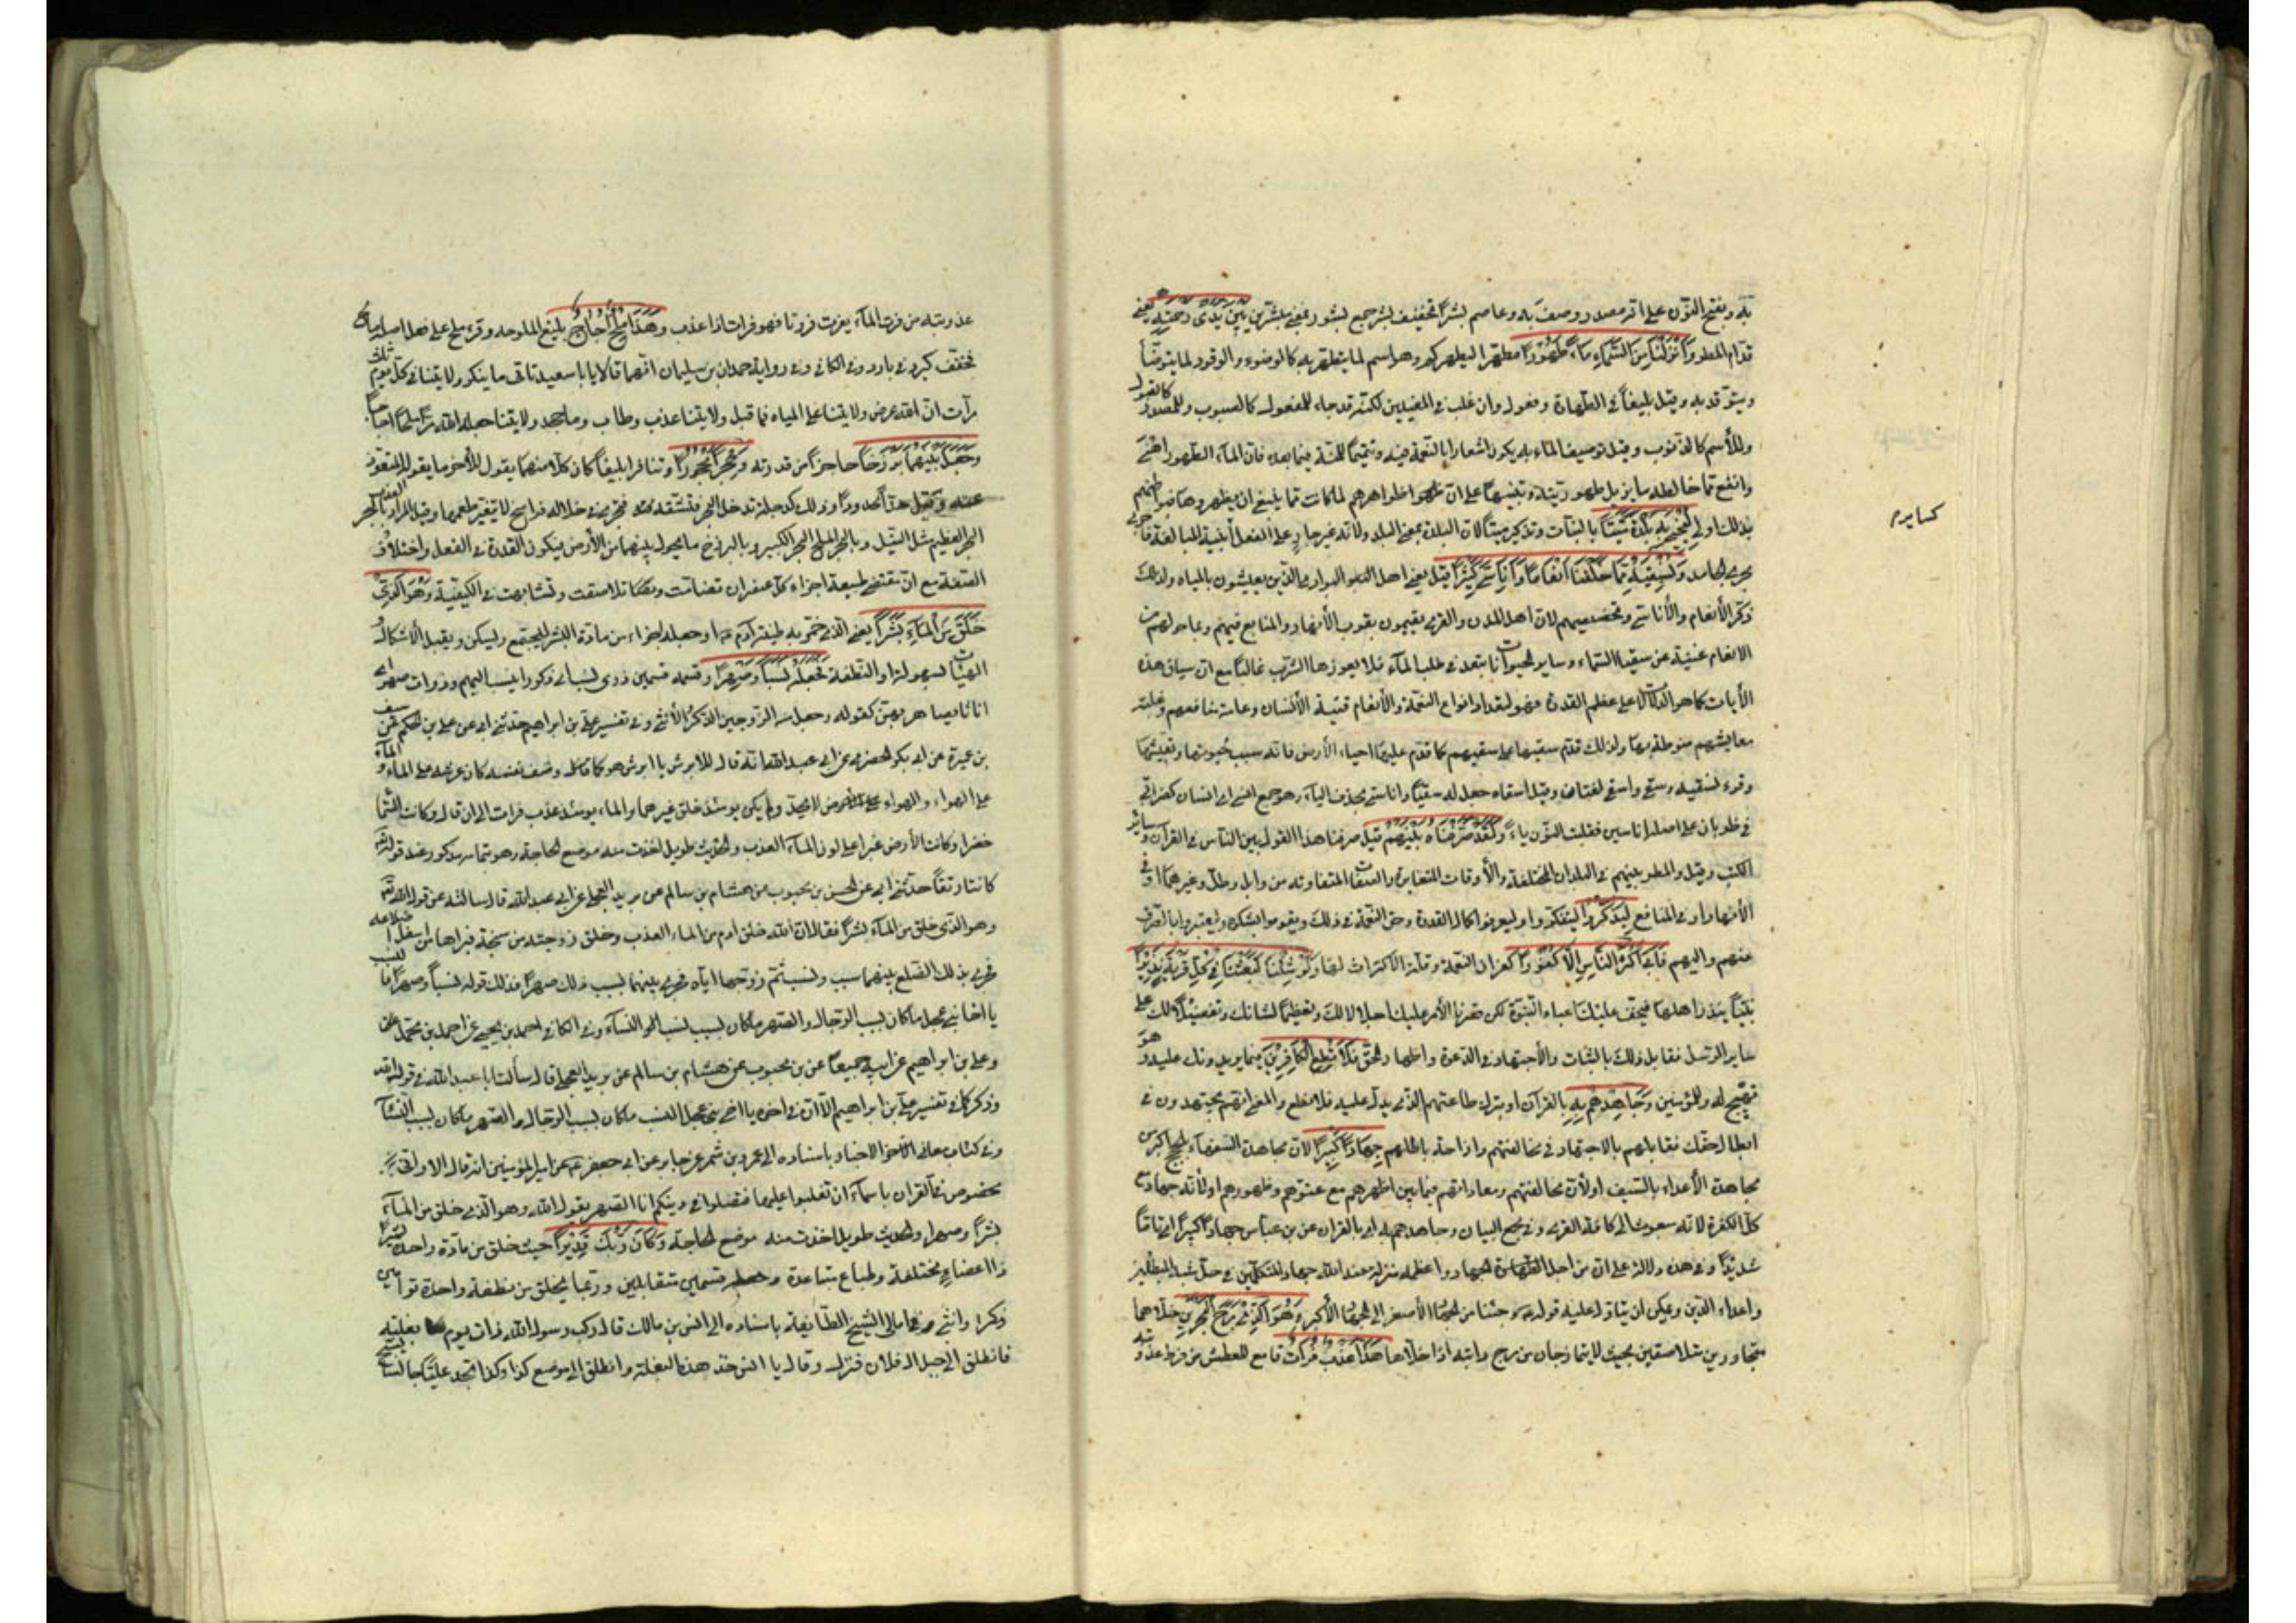 به وبفتح النّون على انّه مصدر وصف به وعاصم بشراً تخفيف بشر جمع بشور بمعنى مبشّر بين يدى رحمته يعنى
قدّام المطر وَاَنْزَلْنَا مِنَ السَّمَاءِ مَاءً طَهُورًا مطهّرا ليطهركم وهو اسم لما يتطهّر به كالوضوء والوقود لما يتوضّأ
ويتوقد به وقيل بليغاً فى الطهارة وفعول وان غلب فى المعنيين لكنّه قد جاء للمفعول كالصبوب وللمصدر كالقبول
وللأسم كالذنوب وقيل توصيف الماء به يكون اشعارا بالنّعمة فيه وتتميماً للمنّة فيما بعده فانّ الماء الطهور اهنى
وانفع ممّا خالطه ما يزيل طهوريّته وتنبيهاً على انّ ظواهرهم لمّا كانت ممّا ينبغى ان يطهروها فبواطنهم
بذلك اولى لِنُحْيِىَ بِهِ بَلْدَةً مَيْتًا بالنبات وتذكير ميتاً لانّ البلدة بمعنى البلد ولانّه غير جار على الفعل كأبنية المبالغة فاجرى
مجرى الجامد وَنُسْقِيَهُ مِمَّا خَلَقْنَا اَنْعَامًا وَاَنَاسِىَّ كَثِيرًا قيل يعنى اهل البوادى الّذين يعيشون بالمياه ولذلك
ذكر الأنعام والأناسى وتخصيصهم لانّ اهل المدن والقرى يقيمون بقرب الأنهار والمنابع فبهم وبما حولهم من
الانعام غنية عن سقيا السّماء وساير الحيوانات تبعد فى طلب الماء فلا يعوزها الشرب غالباً مع انّ سياق هذه
الأيات كما هو للدّلالة على عظم القدرة فهو لتعداد انواع النّعمة والأنعام قنية الأنسان وعامة منافعهم وعلية
معايشهم منوطة بها ولذلك قدّم سقيها على سقيهم كما قدّم عليها احياء الأرض فانّه سبب لحيوتها وتعيشها
وقرء نسقيه وسقى واسقى لغتان وقيل اسقاه جعل له سقياً واناسى بحذف الياء وهو جمع انسى او انسان كظرابى
فى ظربان على اصله اناسين فقلبت النّون ياء وَلَقَدْ صَرَّفْنَاهُ بَيْنَهُمْ قيل صرفنا هذا القول بين النّاس فى القرآن وساير
الكتب وقيل والمطر بينهم فى البلدان المختلفة والأوقات المتغايرة والصفات المتفاوته من وابل وطلّ وغيرهما او فى
الأنهار او فى المنافع لِيَذَّكَّرُوا ليتفكّروا وليعرفوا كمال القدرة وحق النّعمة فى ذلك ويقوموا بشكره وليعتبروا بالصرف
عنهم واليهم فَاَبَى اَكْثَرُ النَّاسِ اِلَّا كُفُورًا كفران النعمة وقلّة الاكتراث لها وَلَوْ شِئْنَا لَبَعَثْنَا فِى كُلِّ قَرْيَةٍ نَذِيرًا
نبيّاً ينذر اهلها فيخف عليك اعباء النبوّة لكن قصرنا الأمر عليك اجلالا لك وتعظيماً لشانك وتفضيلاً لك على
ساير الرسل فقابل ذلك بالثبات والأجتهاد فى الدّعوة واظهار الحقّ فَلَا تُطِعِ الْكَافِرِينَ فيما يريدونك عليه وهو
تهييج له وللمؤمنين وَجَاهِدْهُمْ بِهِ بالقرآن او بترك طاعتهم الّذى يدلّ عليه فلا تطع والمعنى انّهم يجتهدون فى
ابطال حقّك فقابلهم بالاجتهاد فى مخالفتهم وازاحة باطلهم جِهَادًا كَبِيرًا لانّ مجاهدة السفهاء بالحجج اكبر من
مجاهدة الأعداء بالسّيف اولأنّ مخالفتهم ومعاداتهم فيما بين اظهرهم مع عتوّهم وظهورهم اولأنّه جهاد مع
كلّ الكفرة لانّه مبعوث الى كافّة القرى وفى مجمع البيان وجاهدهم به اى بالقران عن بن عباس جهاداً كبيراً اى تاماً
شديداً وفى هذه دلالة على انّ من اجلّ الجهاد واعظمه منزلة عند الله جهاد المتكلّمين فى حلّ شبه المبطلين
واعداء الدّين ويمكن ان يتاوّل عليه قوله رجعنا من الجهاد الأصغر الى الجهاد الأكبر وَهُوَ الَّذِى مَرَجَ الْبَحْرَيْنِ خلاّهما
متجاورين متلاصقين بحيث لايتمازجان من مرج دابّته اذا خلاّها هَذَا عَذْبٌ فُرَاتٌ قامع للعطش من فرط عذو
كسايرم
عذوبته من فرت الماء يفرت فروتا فهو فرات اذا عذب وَهَذَا مِلْحٌ اُجَاجٌ بليغ الملوحه وقرء ملح على فعل اصله مالح
فخفّف كبرد فى بارد وفى الكافى وفى رواية حمدان بن سليمان انّهما قالا يا با سعيد تاتى ما ينكر ولايتنا فى كلّ يوم ثلث
مرّات انّ الله عرض ولايتنا على المياه فما قبل ولايتنا عذب وطاب وما جحد ولايتنا جعله الله مرّا وملحاً اجاجاً
وَجَعَلَ بَيْنَهُمَا بَرْزَخًا حاجزاً من قدرته وَحِجْرًا مَحْجُورًا وتنافرا بليغاً كان كلاّ منهما يقول للأخر ما يقوله المتعوّذ
عنه وقيل حدّاً محدوداً وذلك كدجلة تدخل البحر فتشقّه فتجرى فى خلاله فراسخ لا يتغيّر طعمها وقيل المراد بالبحر العذب
البحر العظيم مثل النّيل وبالبحر الملح البحر الكبير وبالبرزخ ما يحول بينهما من الأرض فيكون القدرة فى الفصل واختلاف
الصّفة مع انّ مقتضى طبيعة اجزاء كلّ عنصر ان تضامّت وتلاصقت وتشابهت فى الكيفيّة وَهُوَ الَّذِى
خَلَقَ مِنَ الْمَاءِ بَشَرًا يعنى الّذى خمّر به طينة آدم ع او جعله جزاء من مادّة البشر ليجتمع وليسكن ويقبل الأشكال
الهيئات بسهولة او النّطفة فَجَعَلَهُ نَسَبًا وَصِهْرًا وقسمه قسمين ذوى نسب اى ذكورا ينسب اليهم وذوات صهر اى
اناثا يصاهر بهنّ كقوله وجعل منه الزّوجين الذّكر والأنثى وفى تفسير علىّ بن ابراهيم حدّثنى ابى عن على بن الحكم عن سيف
بن عميرة عن ابى بكر الحضرمى عن ابى عبد الله انّه قال للأبرش يا ابرش هو كما وصف نفسه كان عرشه على الماء والماء
على الهواء والهواء لا يحدّ ولم يكن يومئذ خلق غيرهما والماء يومئذ عذب فرات الى ان قال وكانت السّماء
خضراء وكانت الأرض غبراء على لون الماء العذب والحديث طويل اخذت منه موضع الحاجة وهو بتمامه مذكور عند قوله
كانتا رتقاً حدّثنى ابى عن الحسن بن محبوب عن هشام بن سالم عن بريد العجلى عن ابى عبد الله قال سالته عن قول الله
وهو الّذى خلق من الماء بشراً فقال انّ الله خلق ادم من الماء العذب وخلق زوجته من سنخه فبراها من اسفل اضلاعه
فجرى بذلك الضلع بينهما سبب ونسب ثمّ زوّجها ايّاه فجرى بينهما بسبب ذلك صهراً فذلك قوله نسباً وصهراً فالنسب
يا اخا بنى عجل ما كان بسبب الرّجال والصّهر ما كان بسبب النساء وفى الكافى محمد بن يحيى عن احمد بن محمّد
وعلى بن ابراهيم عن ابيه جميعاً عن بن محبوب عن هشام بن سالم عن بريد العجلى قال سألت ابا عبد الله فى قول الله
وذكر كما فى تفسير علىّ بن ابراهيم الاّ انّ فى اخره يا اخى بنى عجل النسب ما كان بسبب الرّجال والصّهر ما كان بسبب النّساء
وفى كتاب معانى الاخبار باسناده الى عمرو بن شمر عن جابر عن ابى جعفر ع عن امير المؤمنين انّه قال الا وانّى
مخصوص فى القران باسماء ان تغلبوا عليها فتضلوا فى دينكم انا الصّهر يقول الله وهو الّذى خلق من الماء
بشراً وصهرا والحديث طويل اخذت منه موضع الحاجة وَكَانَ رَبُّكَ قَدِيرًا حيث خلق من مادّة واحدة بشراً
ذا اعضاء مختلفة وطباع متباعدة وجعله قسمين متقابلين وربّما يخلق من نطفة واحدة توامين
ذكرا وانثى وفى امالى الشّيخ الطائفة باسناده الى انس بن مالك قال ركب رسول الله ذات يوم بغلته
فانطلق الى جبل ال فلان فنزل وقال يا انس خذ هذه البغلة وانطلق الى موضع كذا وكذا تجد عليّاً جالسا يسبّح